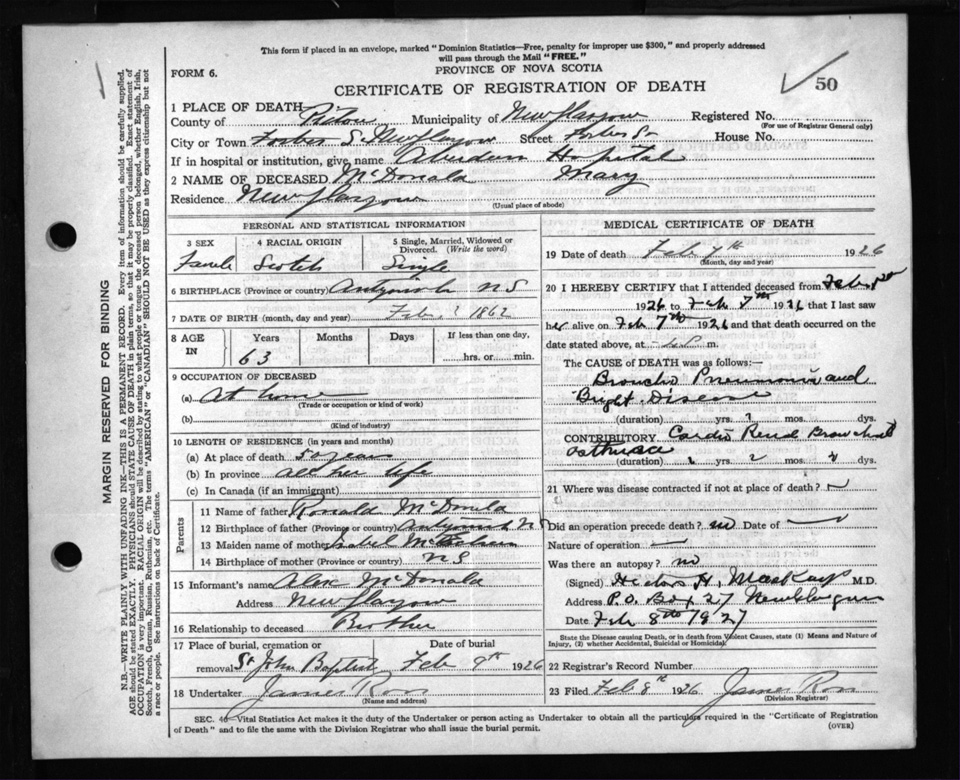 This form if placed in an envelope, marked "Dominion Statistics—Free, penalty for improper use $300," and properly addressed
will pass through the Mail "FREE."
FORM 6.
PROVINCE OF NOVA SCOTIA
CERTIFICATE OF REGISTRATION OF DEATH
50
1 PLACE OF DEATH—
County of Pictou Municipality of New Glasgow Registered No.
(For use of Registrar General only)
City or Town Forbes S New Glasgow Street Forbes St House No.
If in hospital or institution, give name Aberdeen Hospital
2 NAME OF DECEASED McDonald Mary
Residence New Glasgow
(Usual place of abode)
PERSONAL AND STATISTICAL INFORMATION
3 SEX
Female
4 RACIAL ORIGIN
Scotch
5 Single, Married, Widowed or
Divorced. (Write the word)
Single
6 BIRTHPLACE (Province or country) Antigonish N S
7 DATE OF BIRTH (month, day and year) Feb 1862
8 AGE
IN
Years
63
Months
Days
If less than one day,
hrs. or min.
9 OCCUPATION OF DECEASED
(a) At home
(Trade or occupation or kind of work)
(b)
(Kind of industry)
10 LENGTH OF RESIDENCE (in years and months)
(a) At place of death 50 years
(b) In province all her life
(c) In Canada (if an immigrant)
Parents
11 Name of father Ronald McDonald
12 Birthplace of father (Province or country) Antigonish N S
13 Maiden name of mother Isabel
14 Birthplace of mother (Province or country) N S
15 Informant's name Alex McDonald
Address New Glasgow
16 Relationship to deceased Brother
17 Place of burial, cremation or
removal St John Baptist
Date of burial
Feb 9th 1926
18 Undertaker James Ross
(Name and address)
MEDICAL CERTIFICATE OF DEATH
19 Date of death Feb 7th 1926
(Month, day and year)
20 I HEREBY CERTIFY that I attended deceased from Feb
1926 to Feb 7th 1926 that I last saw
her alive on Feb 7th 1926 and that death occurred on the
date stated above, at m.
The CAUSE of DEATH was as follows:—
Broncho Pneumonia and
Bright Disease
(duration) yrs. ? mos. dys.
CONTRIBUTORY Cardio Renal Bronchial
Asthma
(duration) yrs. mos. dys.
21 Where was disease contracted if not at place of death?
Did an operation precede death? no Date of
Nature of operation —
Was there an autopsy? no
(Signed) Hector H. MacKay M.D.
Address P.O. Box 27 New Glasgow
Date Feb 8th 1927
State the Disease causing Death, or in death from Violent Causes, state (1) Means and Nature of
Injury, (2) whether Accidental, Suicidal or Homicidal.
22 Registrar's Record Number
23 Filed Feb 8th 1926 James Ross
(Division Registrar)
SEC. 46 Vital Statistics Act makes it the duty of the Undertaker or person acting as Undertaker to obtain all the particulars required in the "Certificate of Registration
of Death" and to file the same with the Division Registrar who shall issue the burial permit.
(OVER)
MARGIN RESERVED FOR BINDING
N.B.—WRITE PLAINLY WITH UNFADING INK—THIS IS A PERMANENT RECORD. Every item of information should be carefully supplied.
AGE should be stated EXACTLY. PHYSICIANS should STATE CAUSE OF DEATH in plain terms, so that it may be properly classified. Exact statement of
OCCUPATION is very important. RACIAL ORIGIN will be described by stating to what people or tongue the deceased person belonged, whether English, Irish,
Scotch, French, German, Russian, Ruthenian, etc. The terms "AMERICAN" or "CANADIAN" SHOULD NOT BE USED as they express citizenship but not
a race or people. See instructions on back of Certificate.